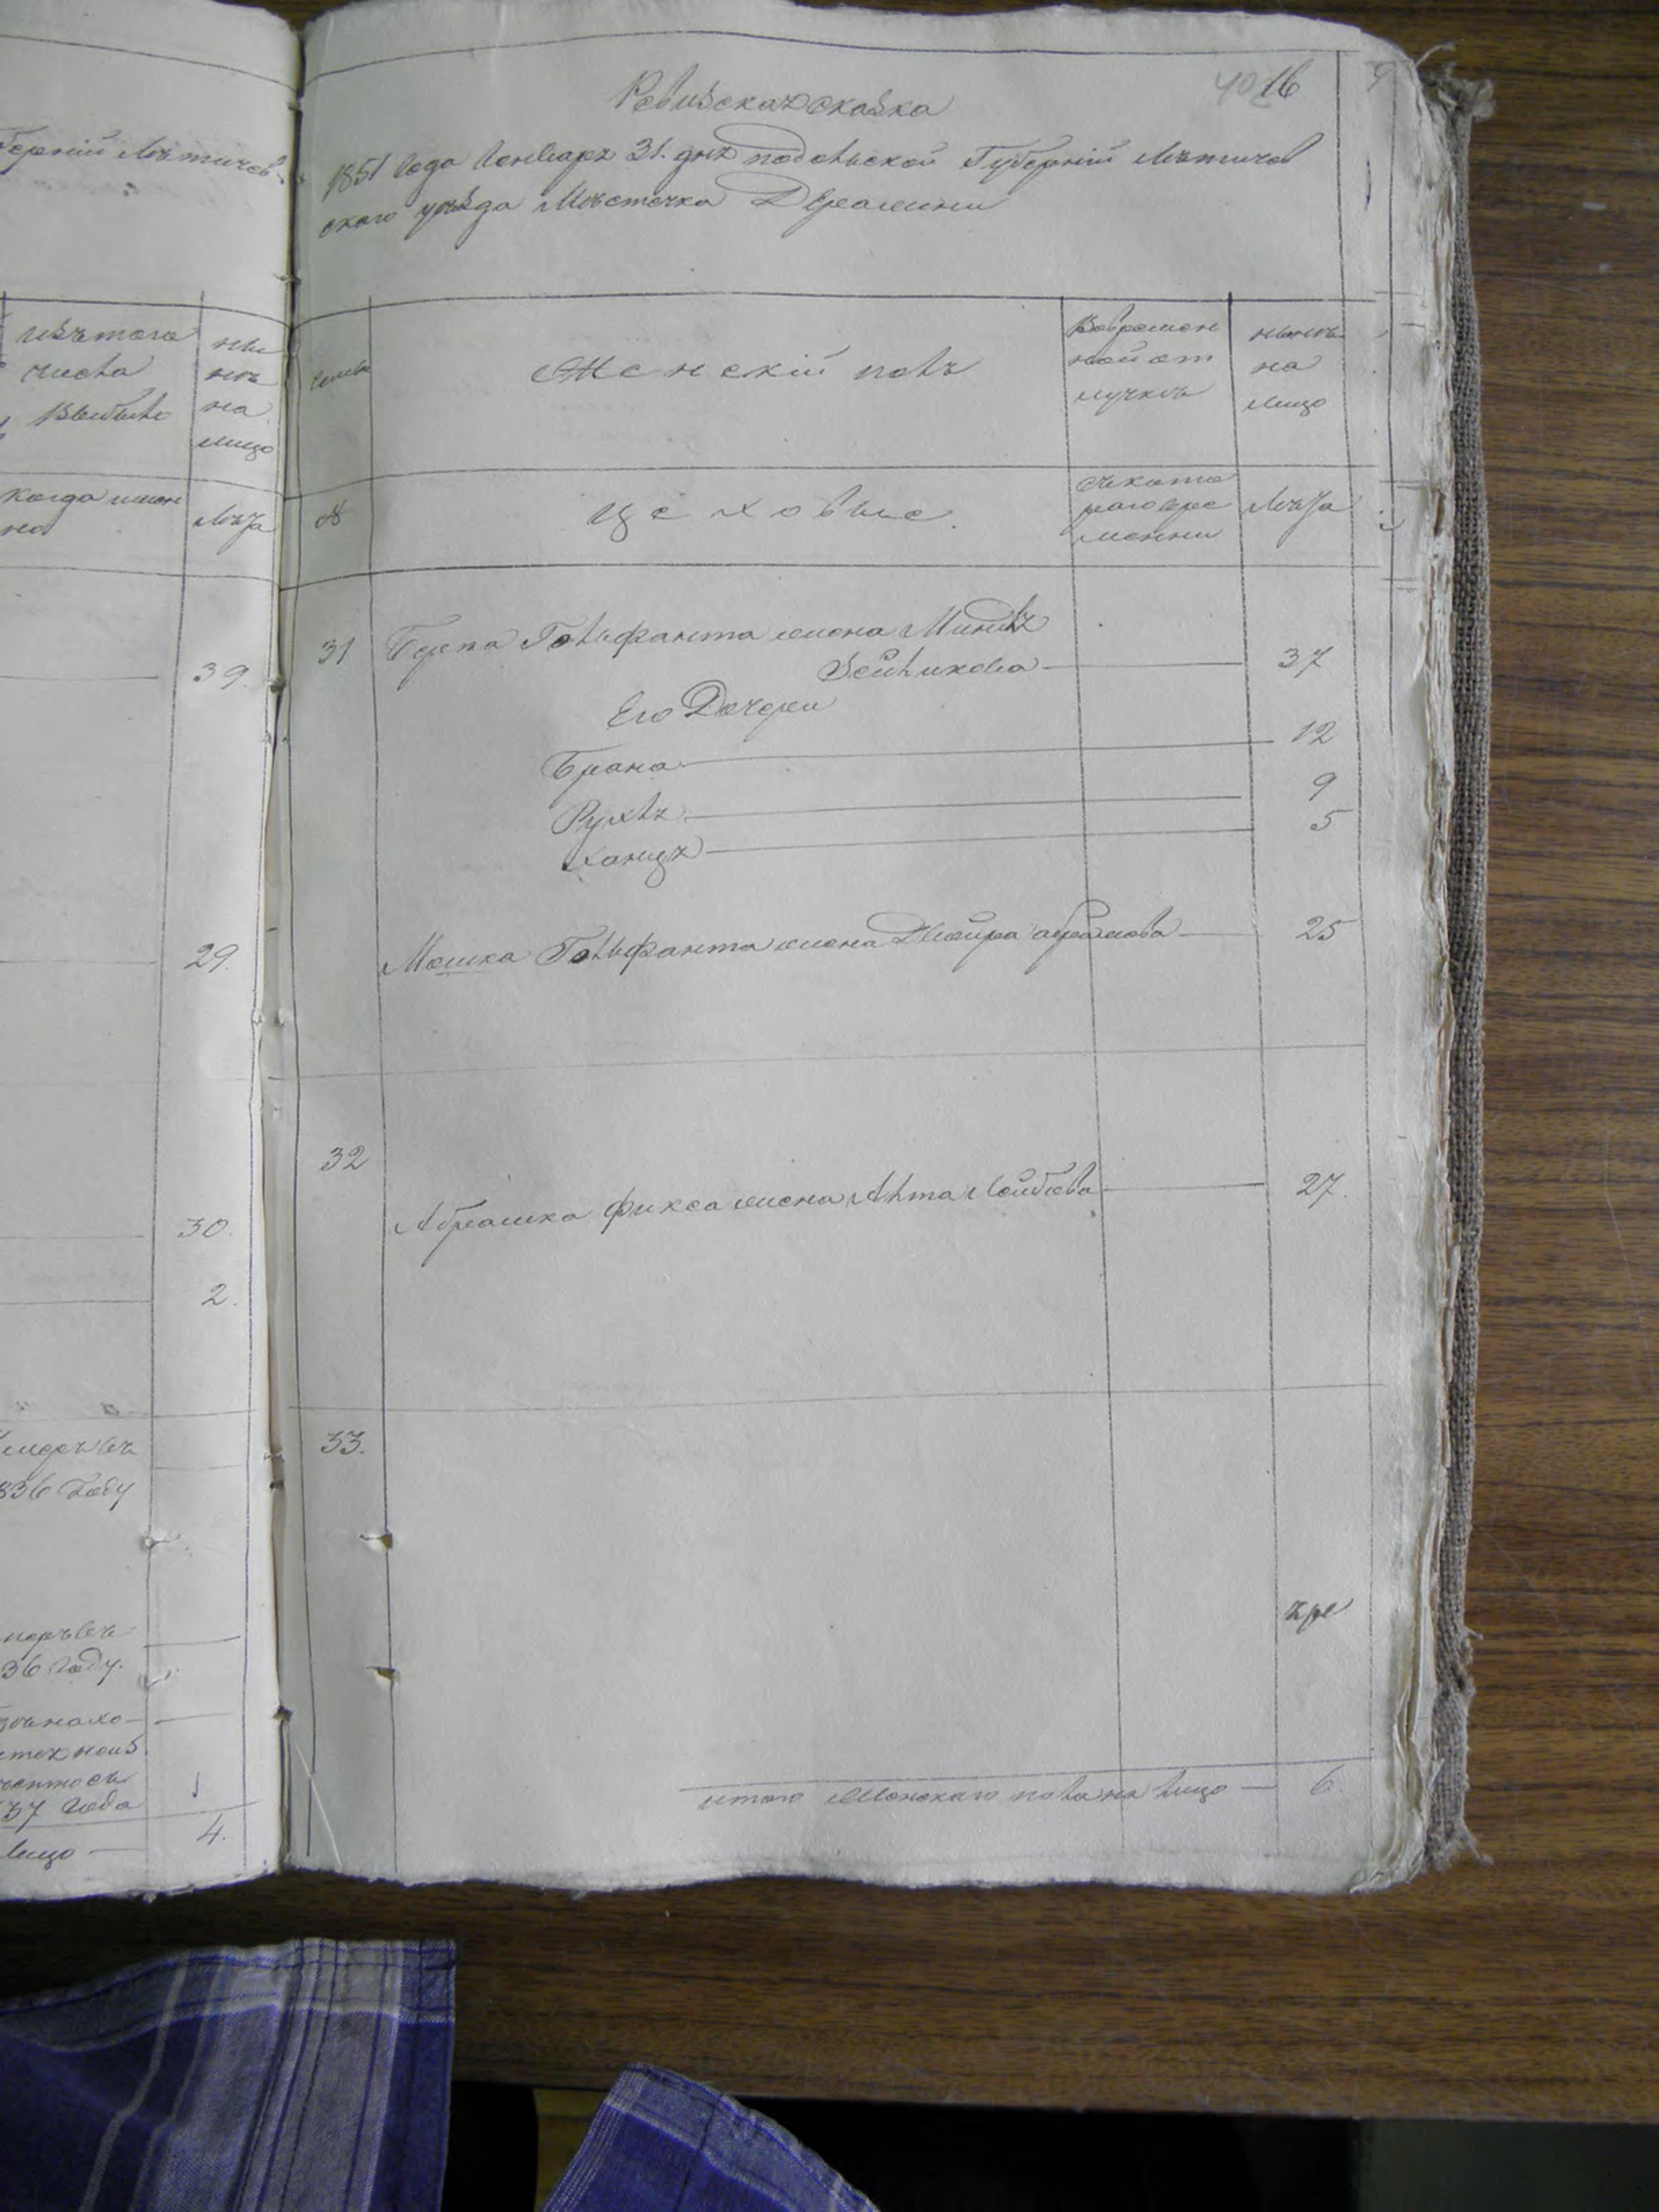 Губерній Летичев
изътого
числа
Выбыло
ны
нѣ
на
лицо
когда имен
но
Лѣта
39.
29.
30.
2.
36 году
36 году.
37 года
1
лицо — 4.
40 16
Ревизская сказка
1851 года Генваря 31. дня подольской Губерній Летичев
скаго уѣзда Мѣстечка Деражни
семьи
Женскій полъ
Вовремен
ной от
лучкѣ
нынѣ
на
лицо
№
Цеховые.
съкото
раго вре
менни
Лѣта
31 Берка Гольфанта жена Миндля
Зейликова — 37
Его Дочери
Брана — 12
Рухля — 9
Ханця — 5
Мошка Гольфанта жена Двойра абрамова — 25
32
Абрашка Фикса жена Алта Лейбова — 27.
33.
итого Женскаго пола на лицо — 6.